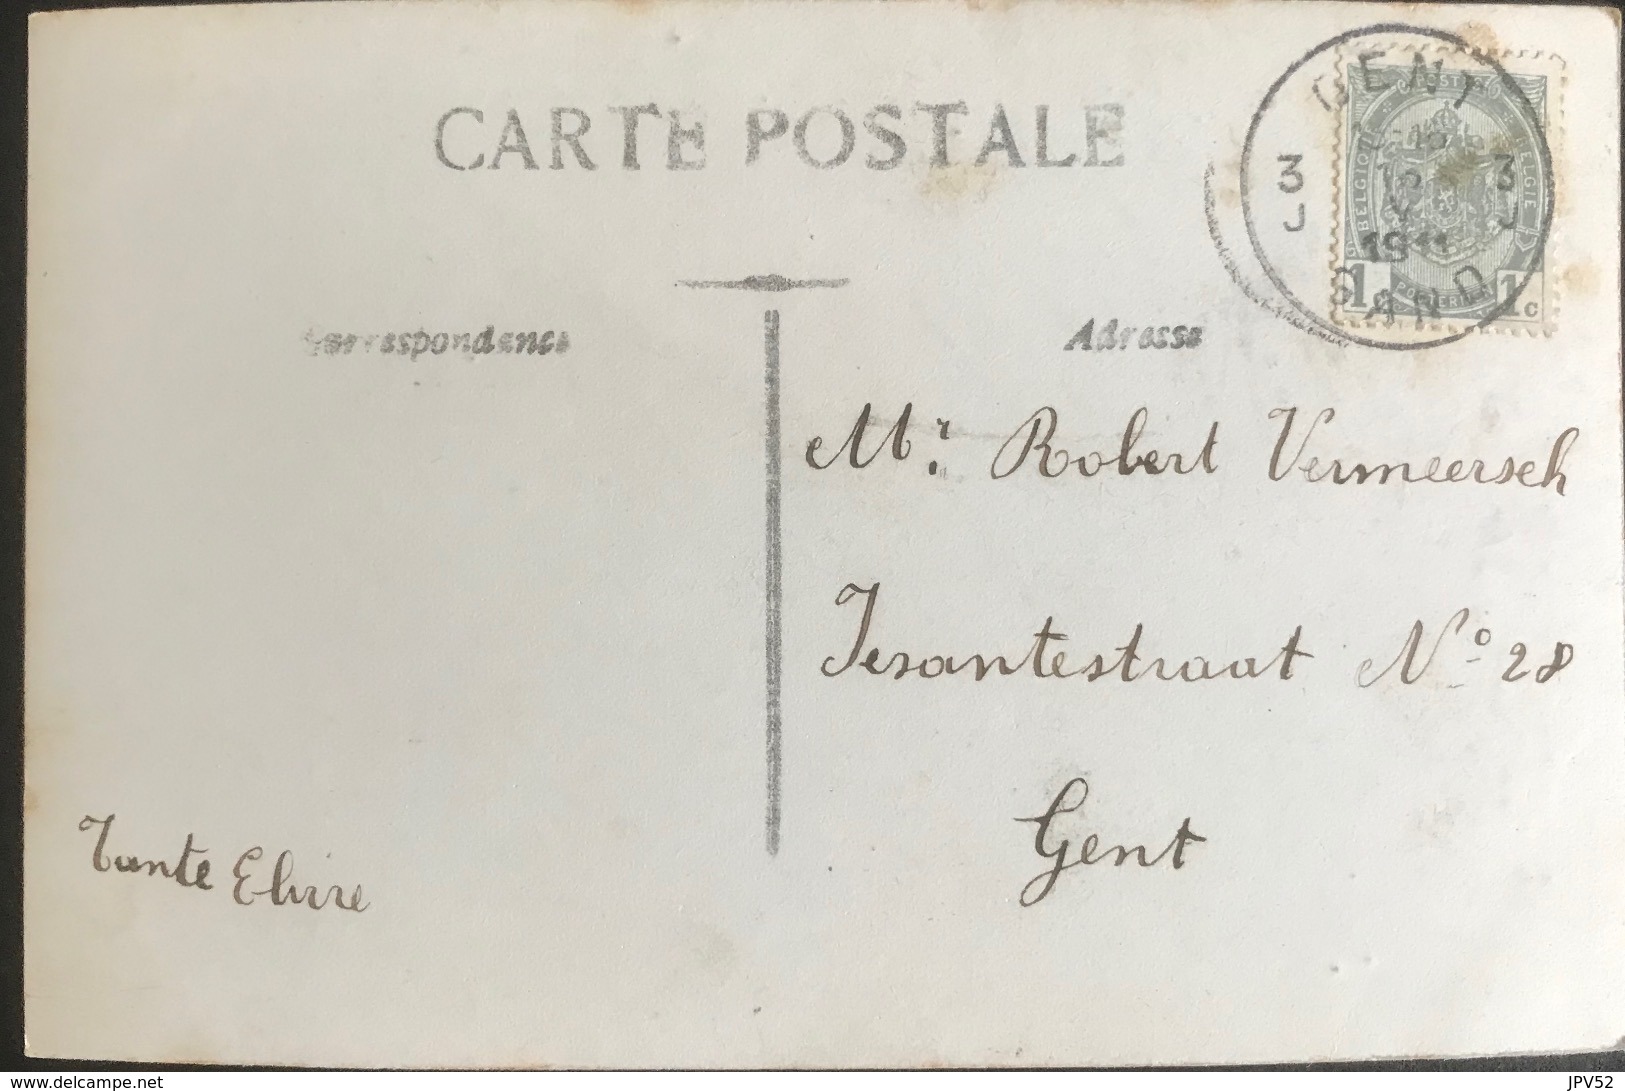 CARTE POSTALE
Correspondance
Adresse
GENT
3 3
J J
1911
GAND
BELGIQUE
BELGIE
1 1c
Mr. Robert Vermeersch
Tesantestraat No 28
Gent
Tante Elvire
www.delcampe.net
JPV52